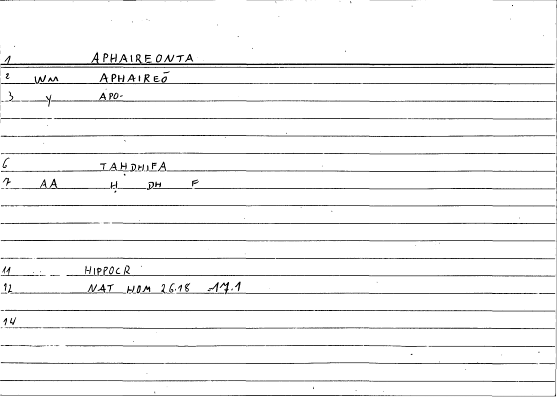 1 APHAIREONTA
2 WM APHAIREŌ
3 y APO-
6 TAḤDHIFA
7 AA Ḥ DH F
11 HIPPOCR
12 NAT HOM 26.18 17.1
14